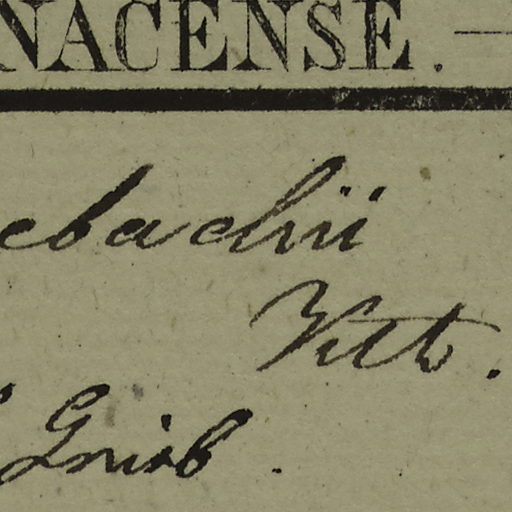 NACENSE. —
ebachii
Vtte.
Griseb.